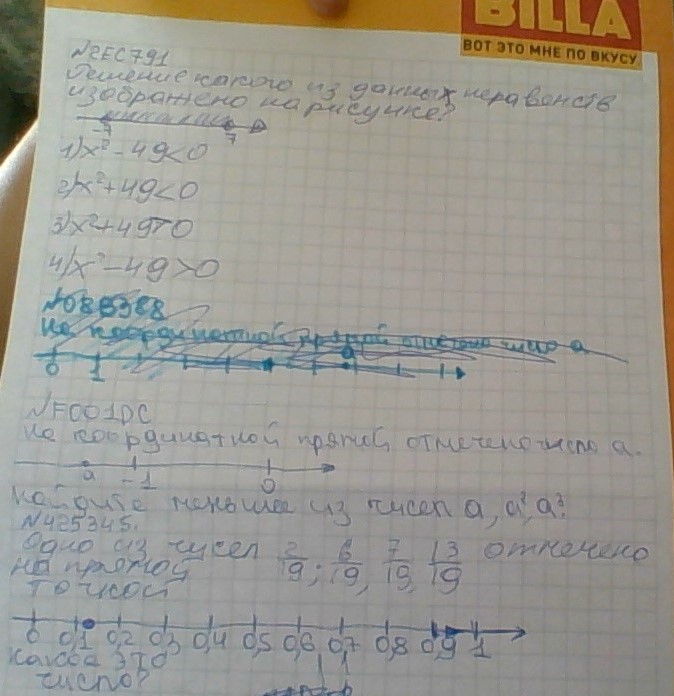 BILLA
ВОТ ЭТО МНЕ ПО ВКУСУ
№2EC791
Решение какого из данных неравенств
изображено на рисунке?
-7 7
1) x² - 49 < 0
2) x² + 49 < 0
3) x² + 49 > 0
4) x² - 49 > 0
на координатной прямой отмечено число a
0 1 a
№F001DC
на координатной прямой отмечено число a.
a -1 0
Найдите меньшее из чисел a, a², a³.
№425345.
Одно из чисел 2/19; 6/19, 7/19, 13/19 отмечено
на прямой
точкой
0 0,1 0,2 0,3 0,4 0,5 0,6 0,7 0,8 0,9 1
какое это
число?